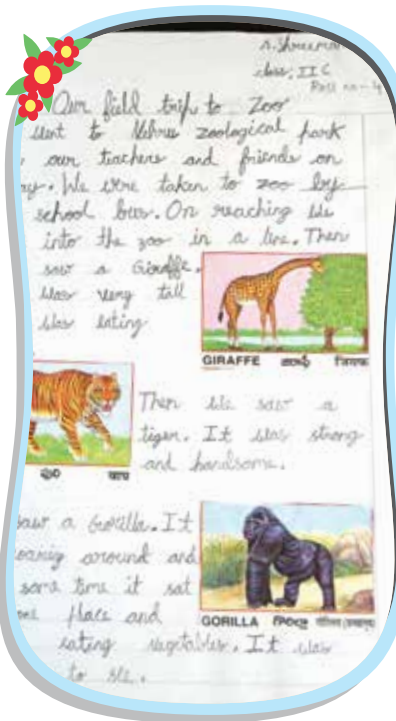 S. Shreema
class: II C
Roll no - 4
Our field trip to Zoo
went to Nehru zoological park
our teachers and friends on
ay. We were taken to zoo by
school bus. On reaching We
into the zoo in a line. Then
saw a Giraffe.
Was very tall
Was eating
GIRAFFE जिराफ
Then We saw a
tiger. It was strong
and handsome.
బాఘ
saw a Gorilla. It
oaring around and
some time it sat
one place and
GORILLA
eating vegetables. It was
to see.